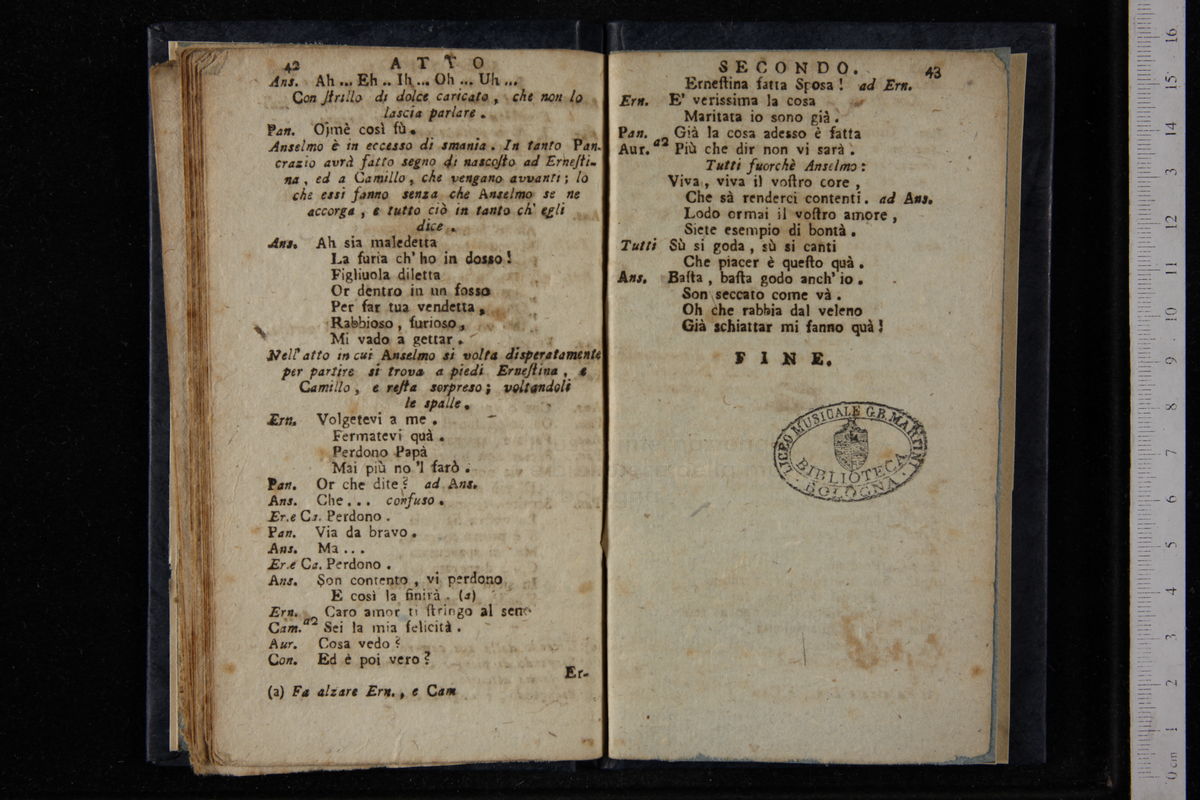 42 ATTO
Ans. Ah ... Eh .. Ih ... Oh ... Uh ...
Con ſtrillo di dolce caricato , che non lo
laſcia parlare .
Pan. Ojmè così fù .
Anselmo è in ecceſſo di smania . In tanto Pan-
crazio avrà fatto segno di nascoſto ad Erneſti-
na , ed a Camillo , che vengano avvanti ; lo
che essi fanno senza che Anselmo se ne
accorga , e tutto ciò in tanto ch' egli
dice .
Ans. Ah sia maledetta
La furia ch' ho in dosso !
Figliuola diletta
Or dentro in un fosso
Per far tua vendetta ,
Rabbioso , furioso ,
Mi vado a gettar .
Nell' atto in cui Anselmo si volta disperatamente
per partire si trova a piedi Erneſtina , e
Camillo , e reſta sorpreso ; voltandoli
le spalle .
Ern. Volgetevi a me .
Fermatevi quà .
Perdono Papà
Mai più no 'l farò .
Pan. Or che dite ? ad Ans.
Ans. Che ... confuso .
Er.e Ca. Perdono .
Pan. Via da bravo .
Ans. Ma ...
Er.e Ca. Perdono .
Ans. Son contento , vi perdono
E così la finirà . (a)
Ern. a2 Caro amor ti ſtringo al seno
Cam. Sei la mia felicità .
Aur. Cosa vedo ?
Con. Ed è poi vero ?
Er-
(a) Fa alzare Ern. , e Cam
SECONDO. 43
Erneſtina fatta Sposa ! ad Ern.
Ern. E' verissima la cosa
Maritata io sono già .
Pan. a2 Già la cosa adesso è fatta
Aur. Più che dir non vi sarà .
Tutti fuorchè Anselmo :
Viva , viva il voſtro core ,
Che sà renderci contenti . ad Ans.
Lodo ormai il voſtro amore ,
Siete esempio di bontà .
Tutti Sù si goda , sù si canti
Che piacer è queſto quà .
Ans. Baſta , baſta godo anch' io .
Son seccato come và .
Oh che rabbia dal veleno
Già schiattar mi fanno quà !
FINE.
LICEO MUSICALE G.B. MARTINI
BIBLIOTECA
BOLOGNA
0 cm 1 2 3 4 5 6 7 8 9 10 11 12 13 14 15 16